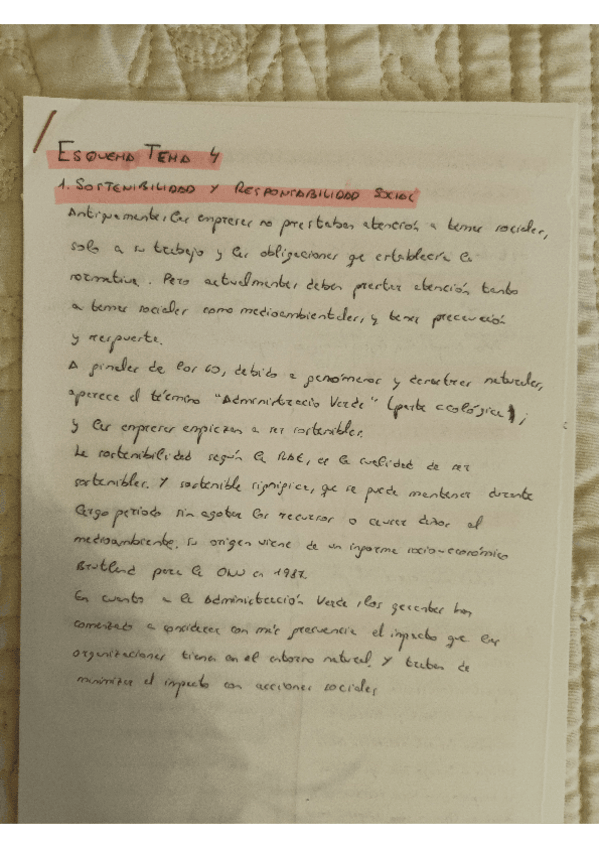 ESQUEMA TEMA 4
1. SOSTENIBILIDAD Y RESPONSABILIDAD SOCIAL
Antiguamente, las empresas no prestaban atención a temas sociales,
solo a su trabajo y las obligaciones que establecía la
normativa. Pero actualmente, deben prestar atención tanto
a temas sociales como medioambientales, y tener precaución
y respuesta.
A finales de los 60, debido a fenómenos y desastres naturales,
aparece el término "Administración Verde" (parte ecológica);
y las empresas empiezan a ser sostenibles.
La sostenibilidad según la RAE, es la cualidad de ser
sostenibles. Y sostenible significa, que se puede mantener durante
largo periodo sin agotar los recursos o causar daños al
medioambiente. Su origen viene de un informe socio-económico
Brutland para la ONU en 1987.
En cuanto a la Administración Verde, los gerentes han
comenzado a considerar con más frecuencia el impacto que las
organizaciones tienen en el entorno natural. Y tratan de
minimizar el impacto con acciones sociales